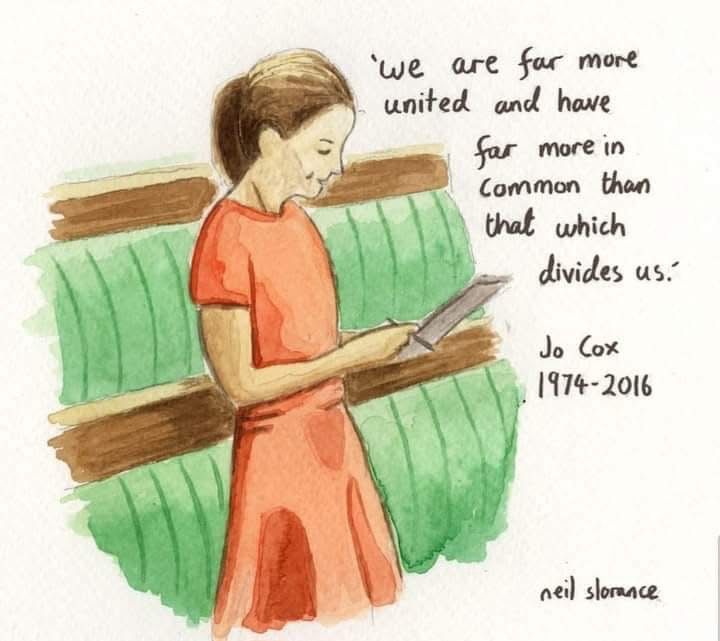 'we are far more
united and have
far more in
common than
that which
divides us.'
Jo Cox
1974-2016
neil slorance